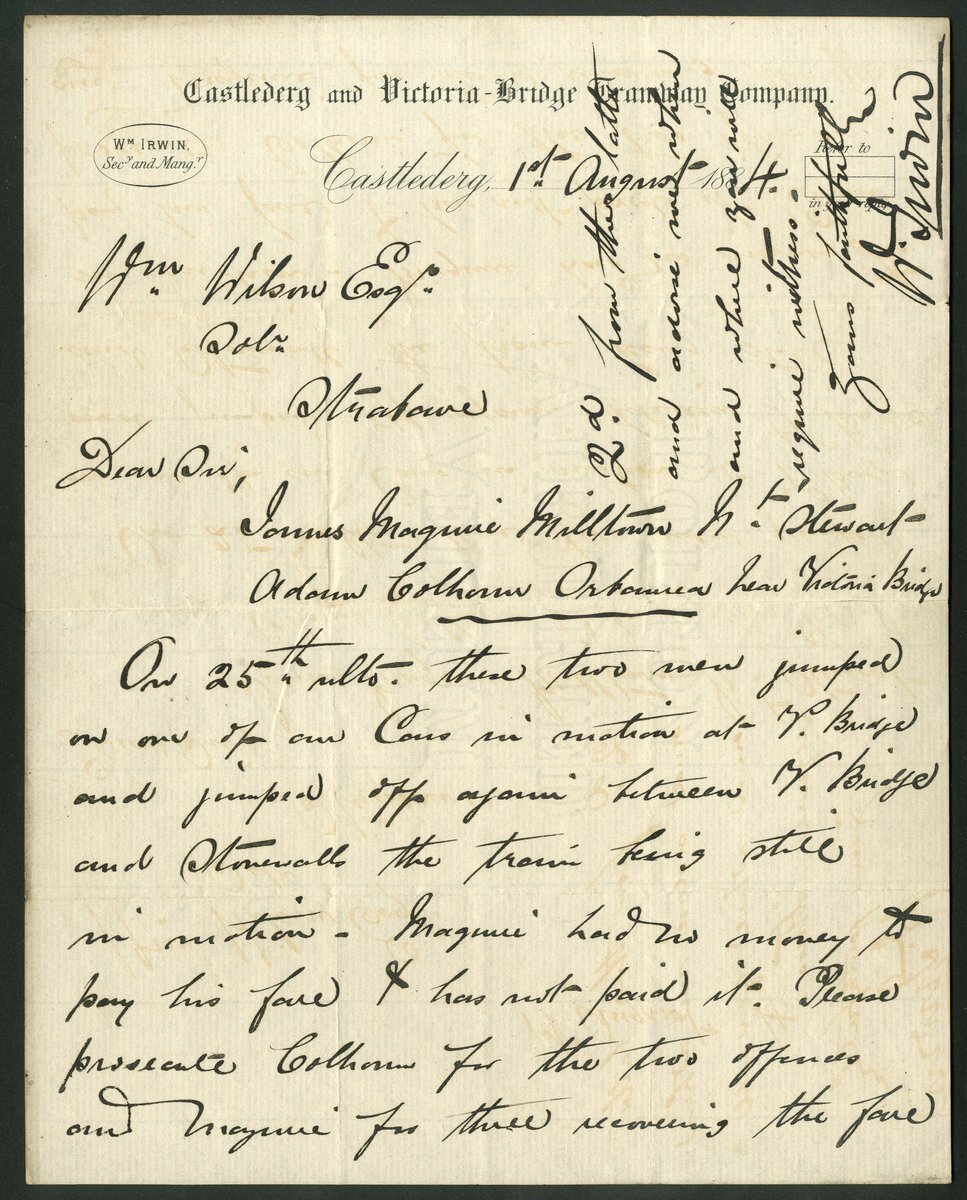 Castlederg and Victoria-Bridge Tramway Company.
Wm Irwin,
Secy and Mangr
Refer to
in your reply
Castlederg, 1st August 1884.
Wm Wilson Esqr.
Solr
Strabane
Dear Sir,
James Maguire Milltown Nt. Stewart
Adam Colhoun near Victoria Bridge
On 25th ulto. these two men jumped
on one of our Cars in motion at V. Bridge
and jumped off again between V. Bridge
and Stonewalls the train being still
in motion - Maguire had no money to
pay his fare & has not paid it. Please
prosecute Colhoun for the two offences
and Maguire for three recovering the fare
2d. from the latter
and advise me when
and where you will
require witness.
Yours faithfully
W Irwin